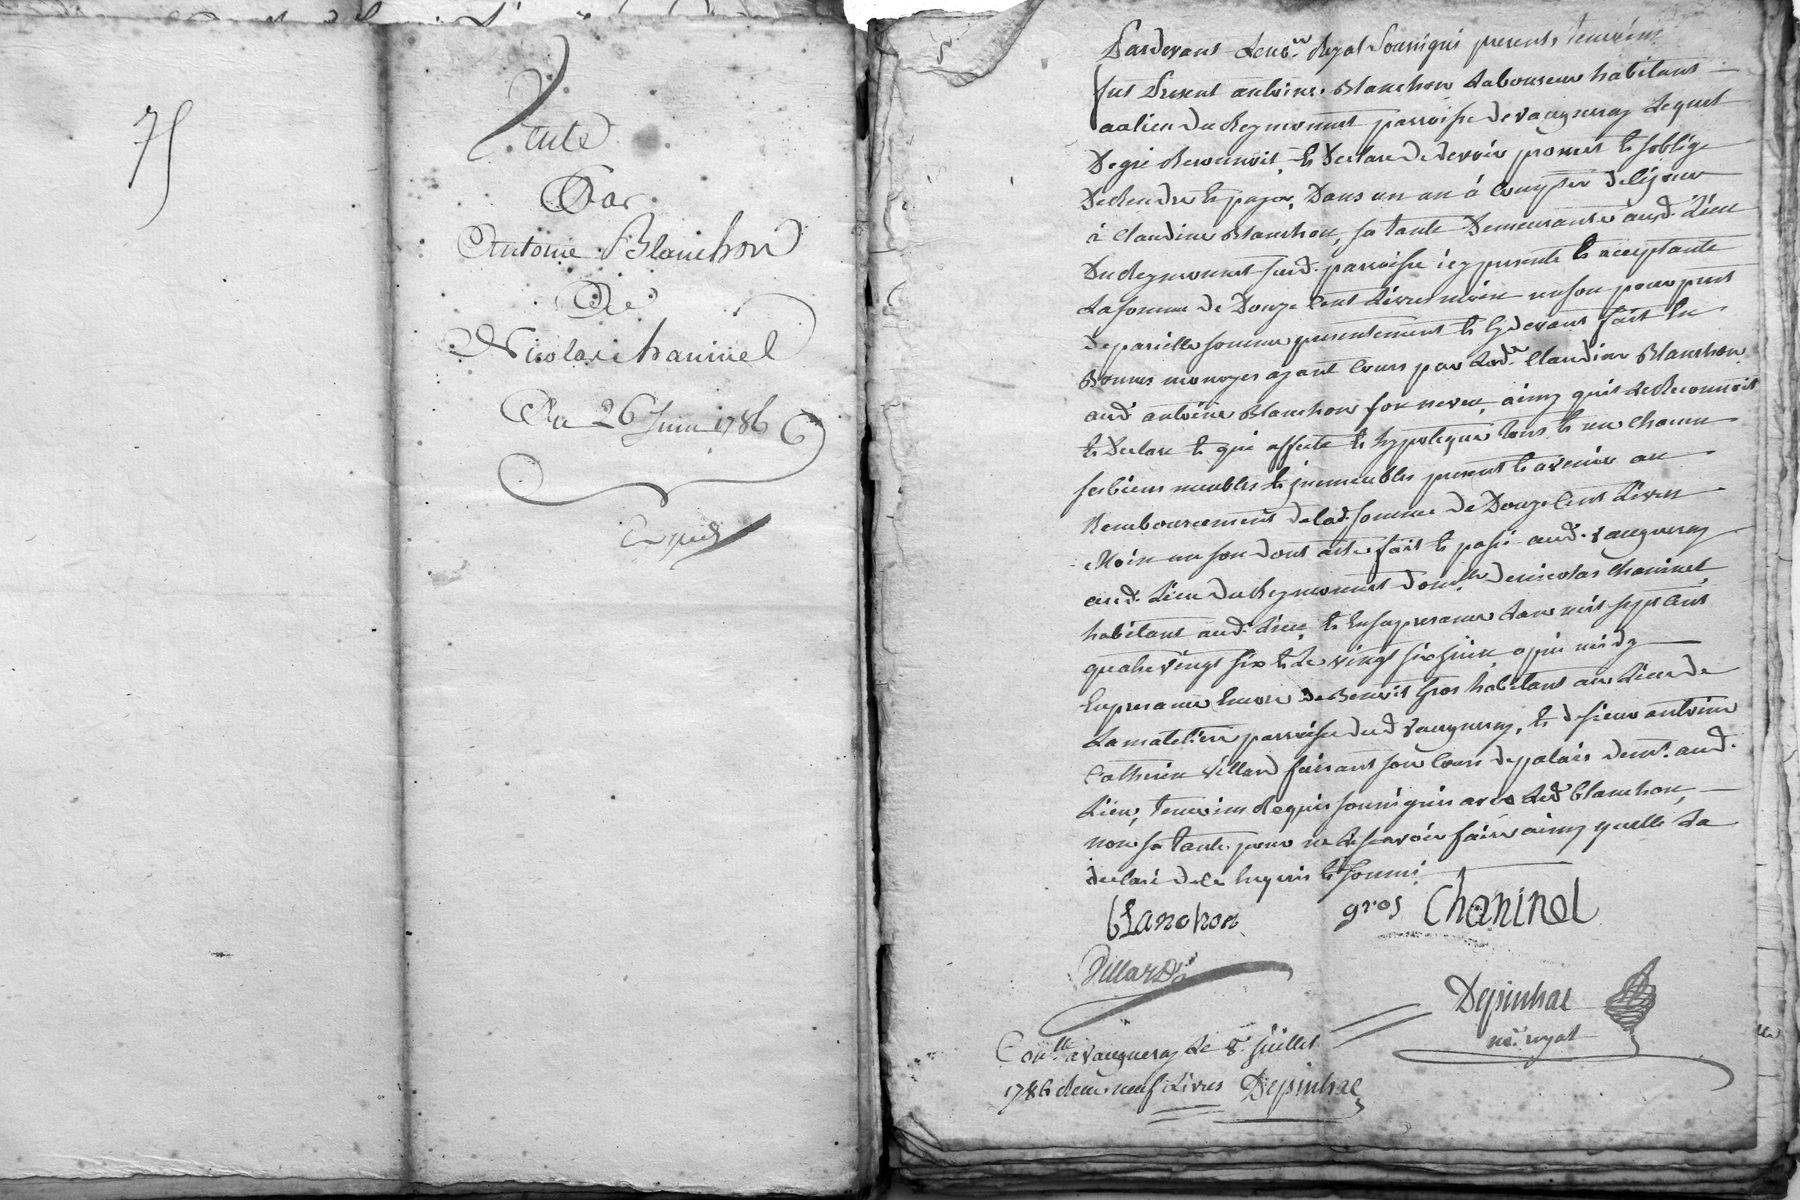 75
Vente
Par
Antoine Blanchon
De
Nicolas chaninel
Du 26 Juin 1786
Expéd
Pardevant Le no.re Royal Soussigné presents temoins
fut Present antoine Blanchon Laboureur habitant
au lieu du Reymonnet parroisse de vaugneray Lequel
De gré Reconnoit, et Declare De devoir promet et soblige
De Rendre et payer, Dans un an à Compter de ce jour
à Claudine Blanchon, sa tante Demeurante aud. Lieu
Du Reymonnet susd. parroisse icy presente et acceptante
La somme de Douze Cent Livres moin un sou pour pret
de pareille somme presentement et cydevant fait en
Bonnes monoyes ayant Cours par Lad.e Claudine Blanchon
aud. antoine Blanchon son neveu, ainsy quil Le Reconnoit
et Declare et qui affecte et hypoteque tous et un chacun
ses biens meubles et immeubles present et avenir au
Remboursement de lad. somme de Douze Cent Livres
Moin un sou dont acte fait et passé aud. vaugneray
aud. Lieu du Reymonnet dom.lle de nicolas Chaninel
habitant aud. Lieu, et en sa presence Lan mil sept cent
quatre vingt six et Le vingt six juin apres midy
En presence encore de Benoit Gros habitant au Lieu de
La matelliere parroisse dud. vaugneray, et de sieur antoine
Catherin Villard faisant son Cours de palais dem.t aud.
Lieu, temoins Requis soussignés avec Led. Blanchon,
non sa tante pour ne Le scavoir faire ainsy quelle La
declaré de ce enquis et sommé
blanchon
gros
Chaninel
Villard
Depinhac
no.re royal
Con.llé a vaugneray Le 8 juillet
1786 Reçu neuf Livres Depinhac